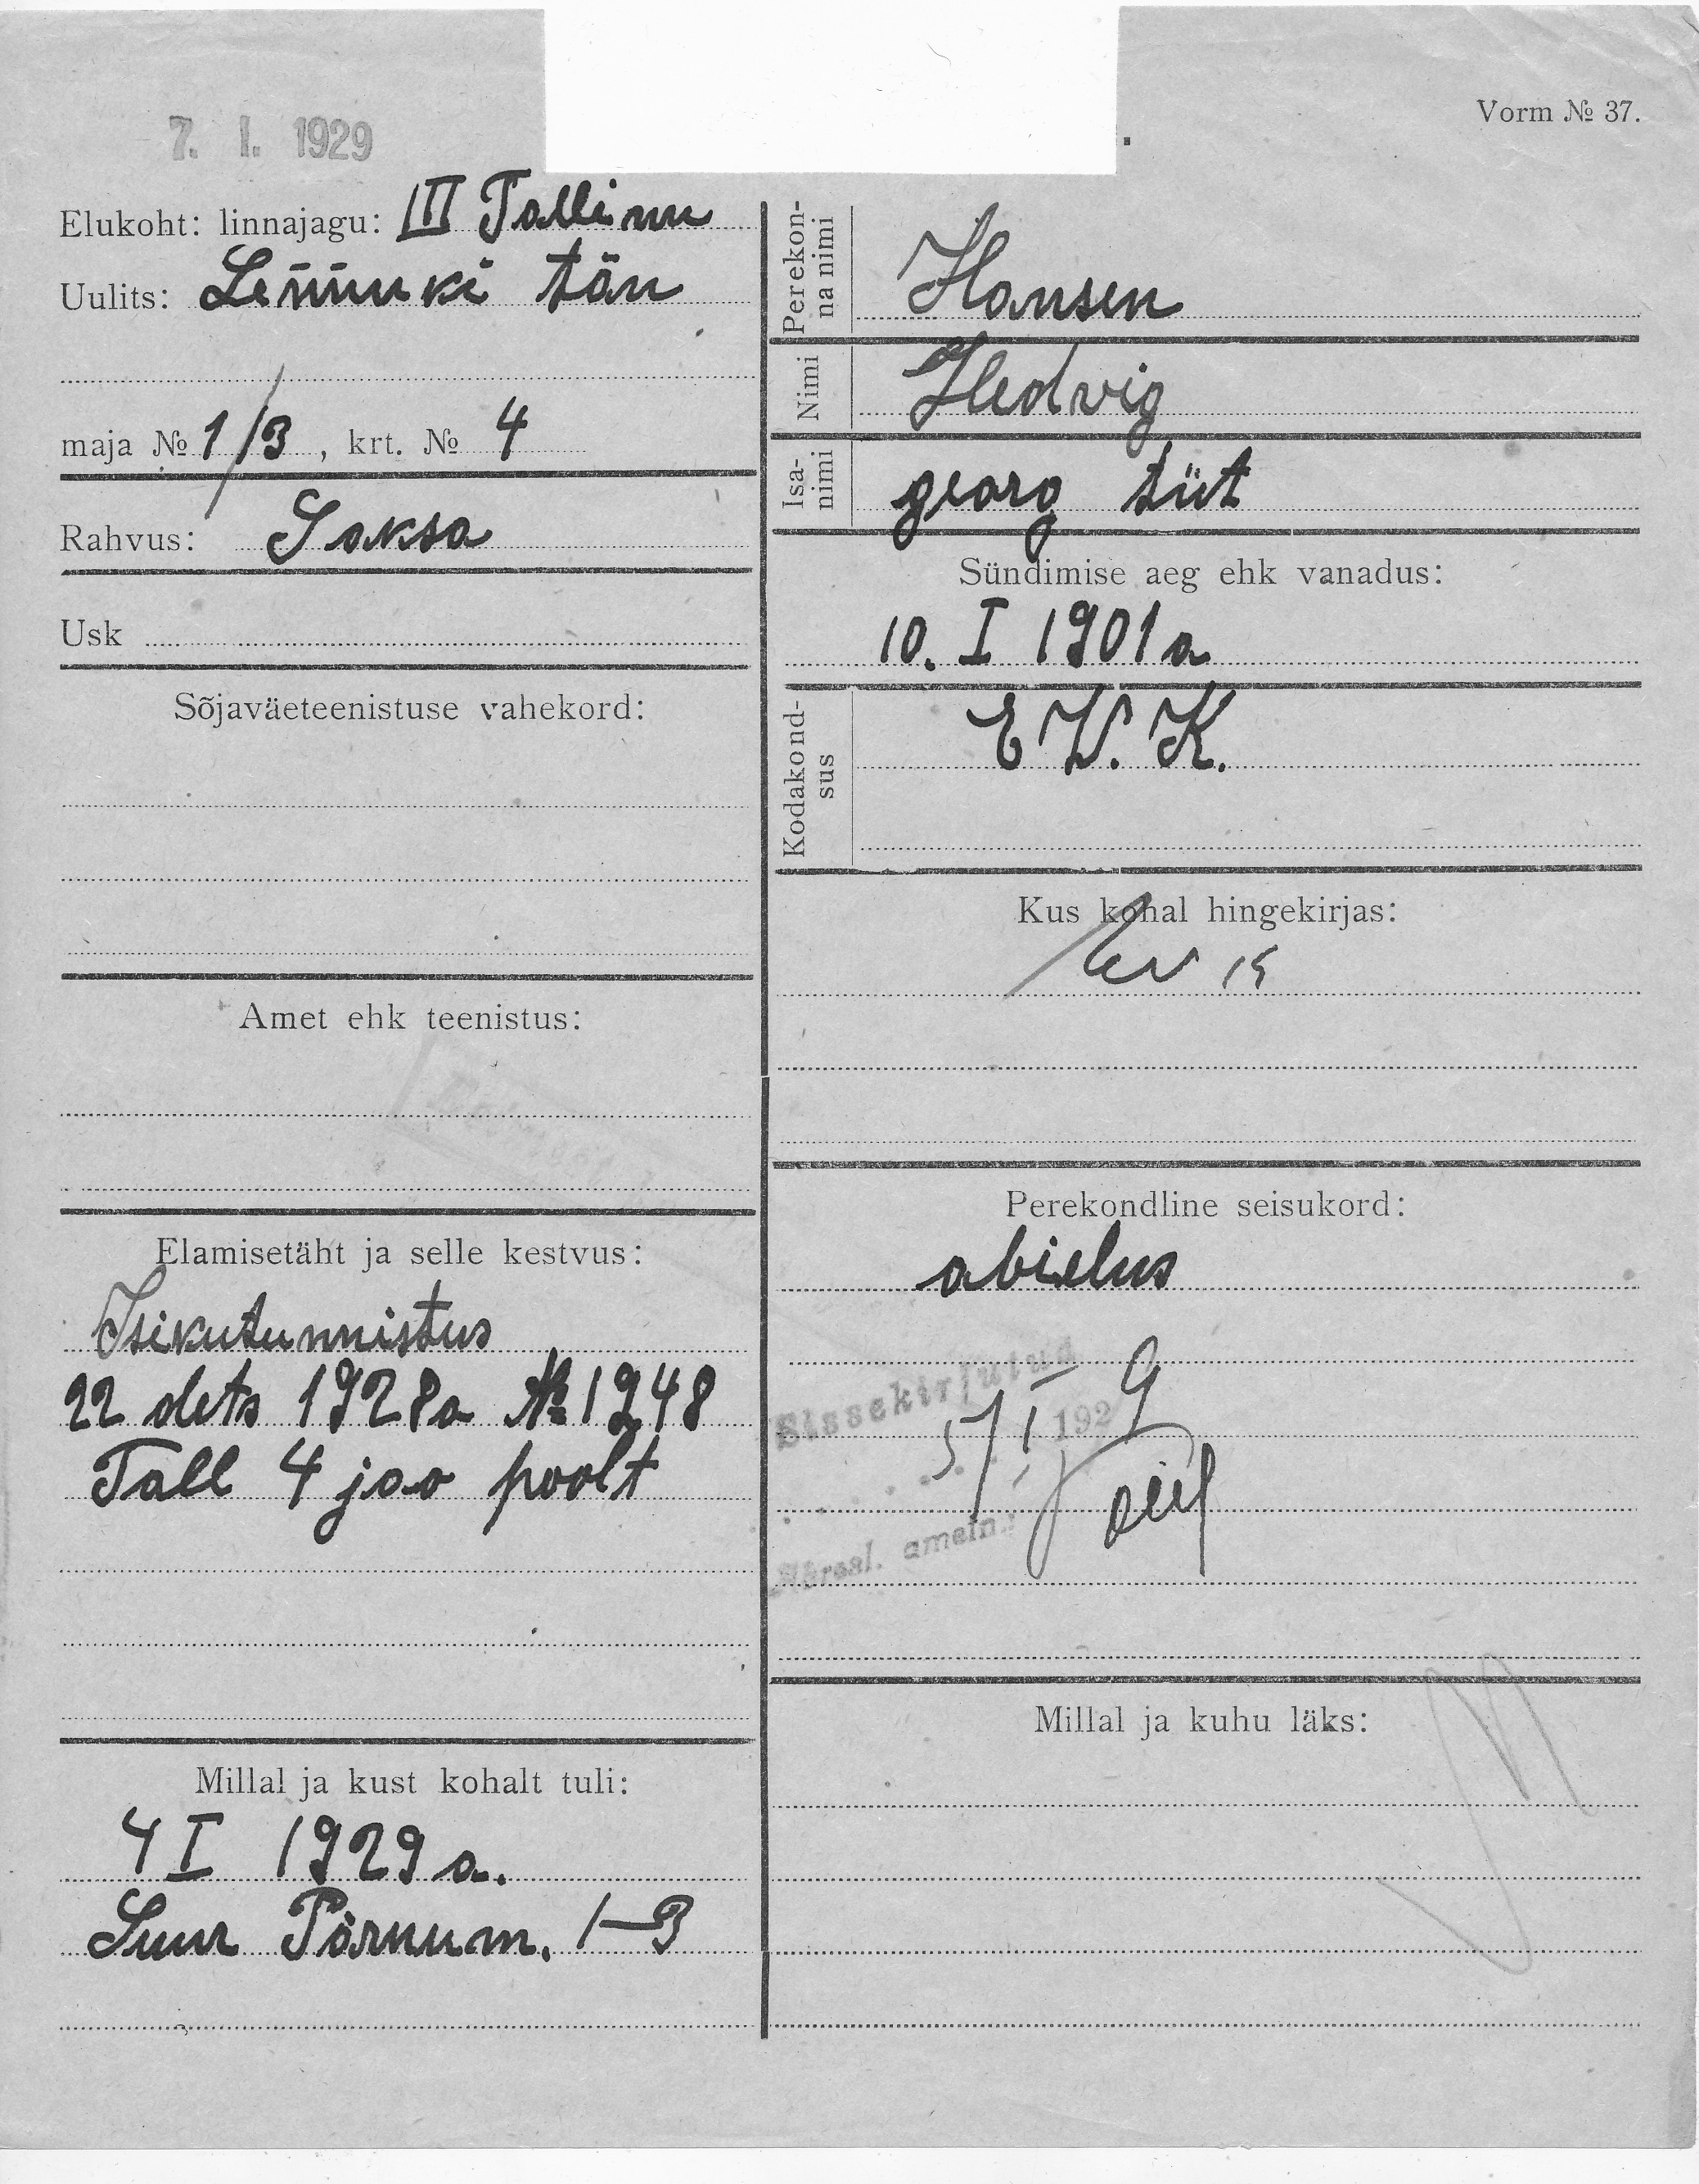 7. I. 1929
Vorm № 37.
Elukoht: linnajagu: III Tallinn
Uulits: Lennuki tän
maja № 1/3, krt. № 4
Rahvus: Saksa
Usk
Sõjaväeteenistuse vahekord:
Amet ehk teenistus:
Elamisetäht ja selle kestvus:
Isikutunnistus
22 dets 1928a № 1248
Tall 4 jao poolt
Millal ja kust kohalt tuli:
4 I 1929 a.
Suur Pärnu m. 1-3
Perekon-
na nimi
Hansen
Nimi
Hedvig
Isa-
nimi
georg tüt
Sündimise aeg ehk vanadus:
10. I 1901 a
Kodakond-
sus
E V. K.
Kus kohal hingekirjas:
Perekondline seisukord:
abielus
Sissekirjutud
5/I 1929
ametn.
Millal ja kuhu läks: